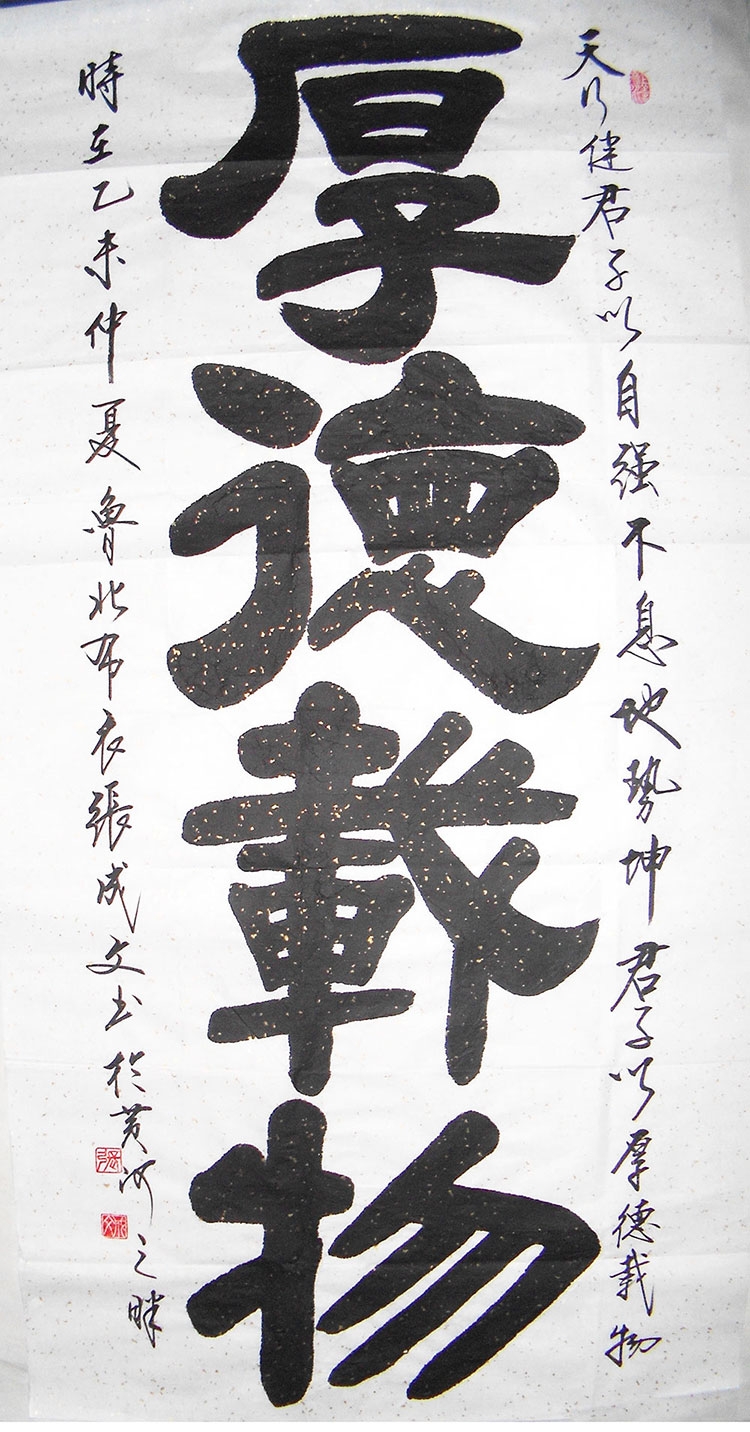 天行健君子以自强不息地勢坤君子以厚德载物
厚德載物
時在乙未仲夏魯北布衣張成文书於黄河之畔